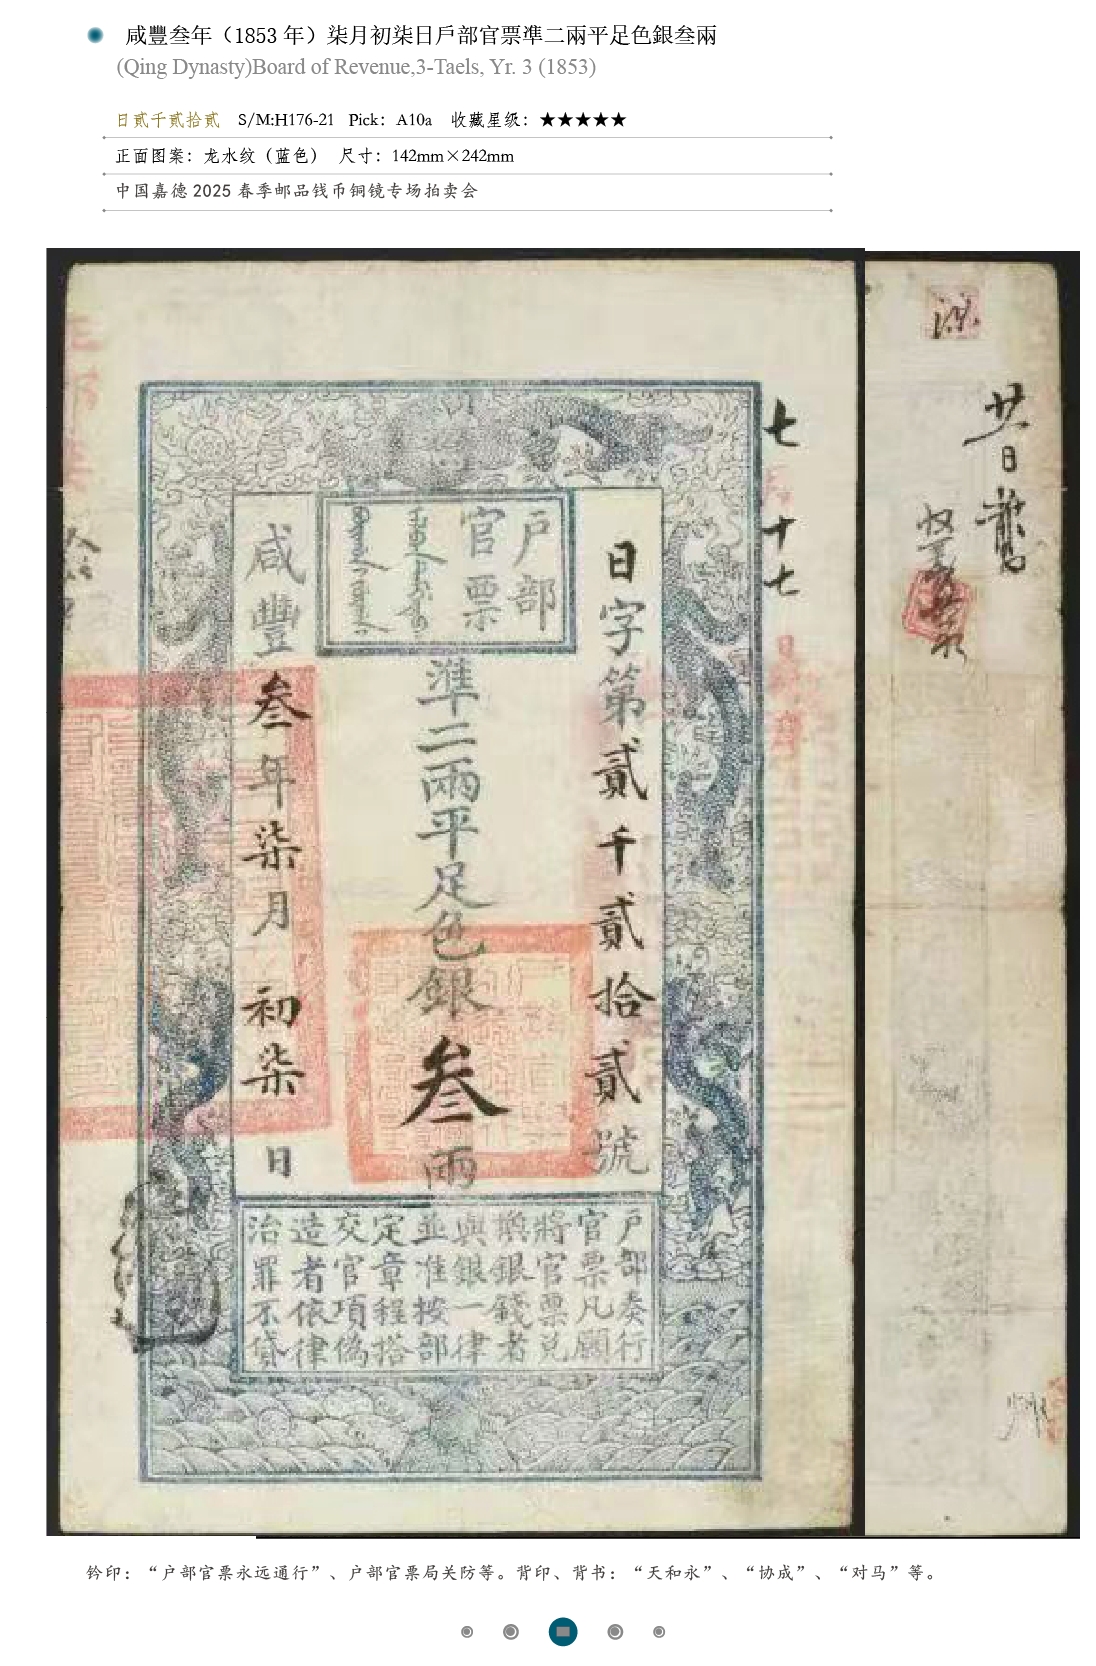 咸豐叁年（1853 年）柒月初柒日戶部官票準二兩平足色銀叁兩
(Qing Dynasty)Board of Revenue,3-Taels, Yr. 3 (1853)
日貳千貳拾貳 S/M:H176-21 Pick：A10a 收藏星级：★★★★★
正面图案：龙水纹（蓝色） 尺寸：142mm×242mm
中国嘉德 2025 春季邮品钱币铜镜专场拍卖会
七十七
日字第貳千貳拾貳號
戶部
官票
準二兩平足色銀叁兩
咸豐叁年柒月初柒日
戶部奏行
官票凡願
將官票兌
換銀錢者
與銀一律
並准按部
定章程搭
交官項偽
造者依律
治罪不貸
廿日
钤印：“户部官票永远通行”、户部官票局关防等。背印、背书：“天和永”、“协成”、“对马”等。